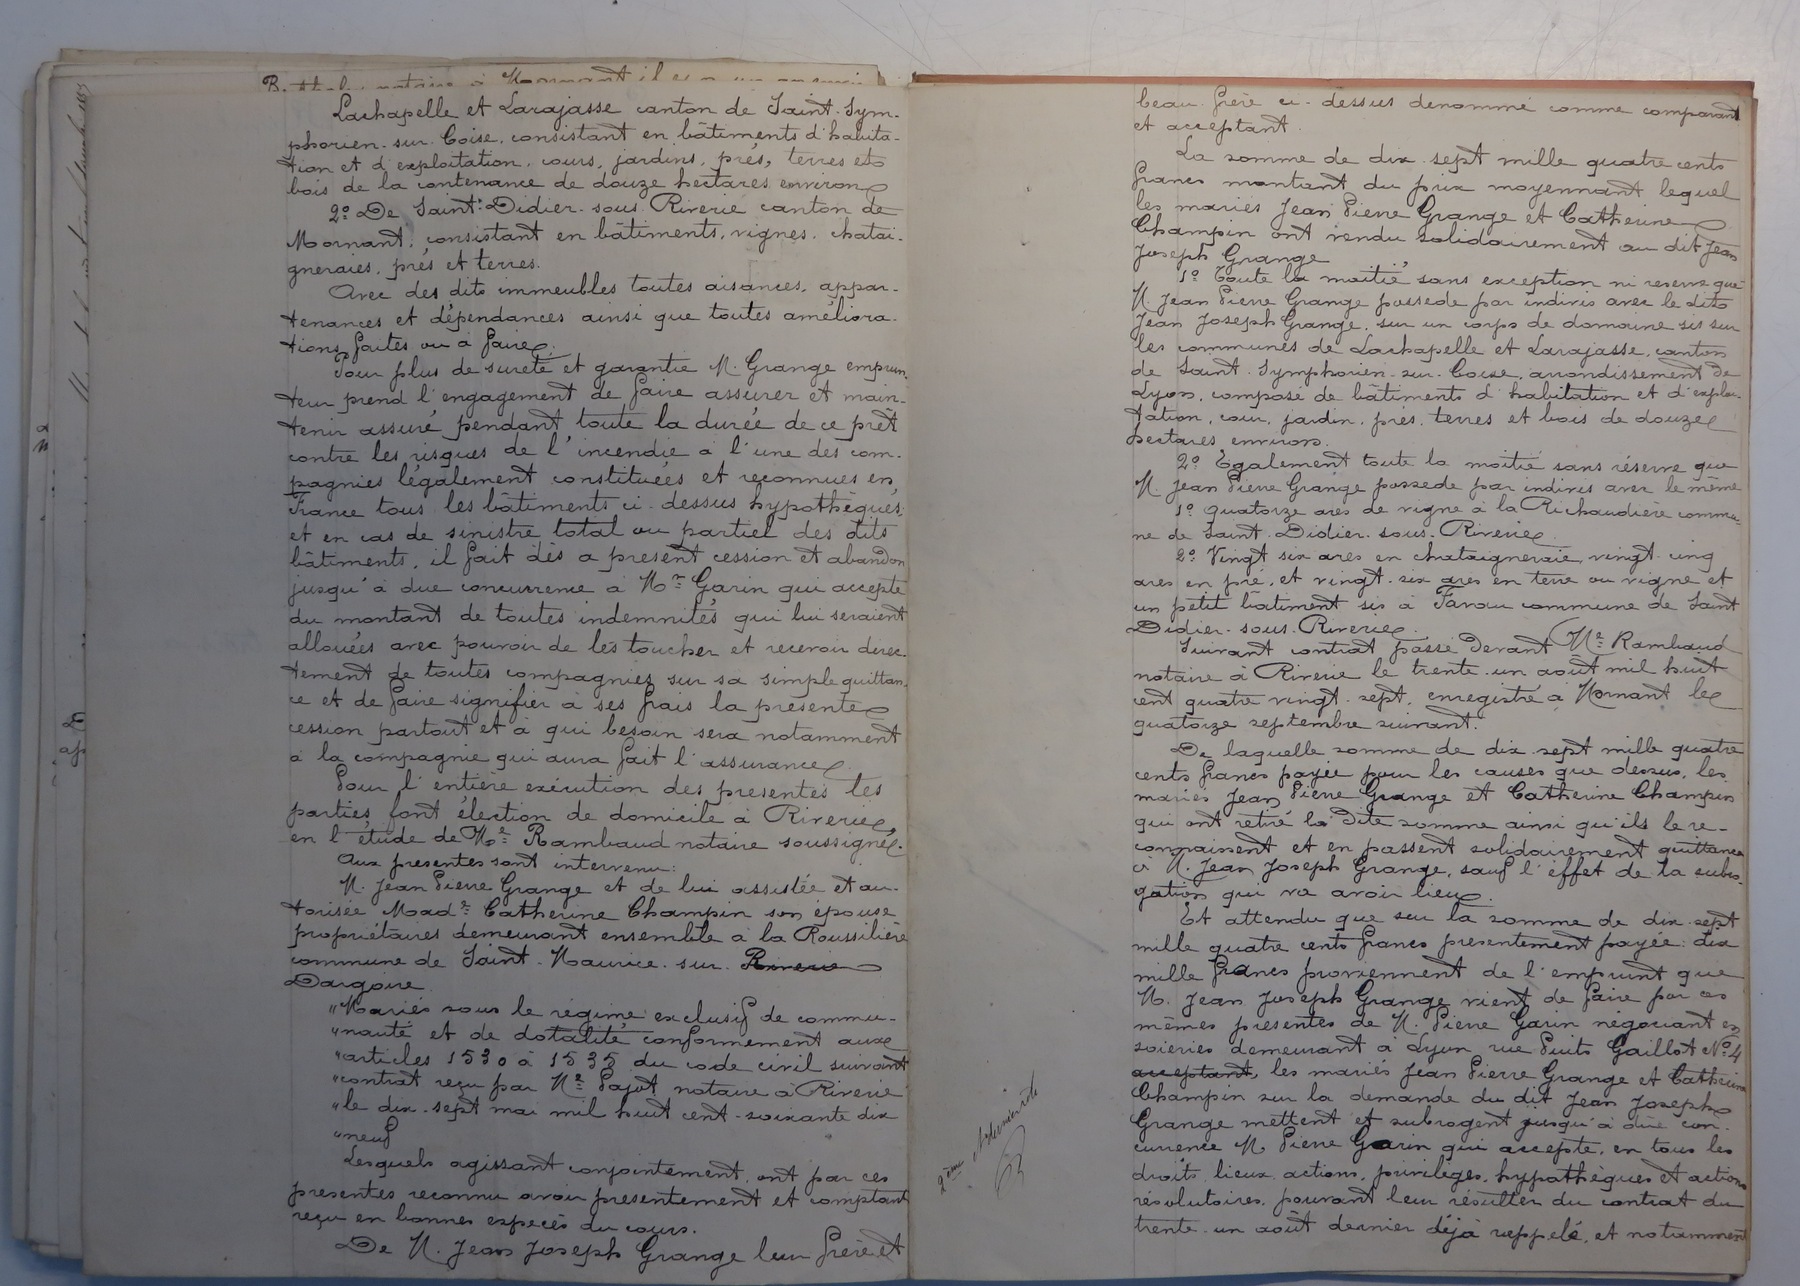 Lachapelle et Larajasse canton de Saint-Sym-
phorien-sur-Coise, consistant en bâtiments d'habita-
tion et d'exploitation, cours, jardins, prés, terres et
bois de la contenance de douze hectares environ
2° De Saint-Didier-sous Riverie canton de
Mornant, consistant en bâtiments, vignes, chatai-
gneraies, prés et terres.
Avec des dits immeubles toutes aisances, appar-
tenances et dépendances ainsi que toutes améliora-
tions faites ou à faire.
Pour plus de sureté et garantie M. Grange emprun-
teur prend l'engagement de faire assurer et main-
tenir assuré pendant toute la durée de ce prêt
contre les risques de l'incendie à l'une des com-
pagnies légalement constituées et reconnues en
France tous les bâtiments ci-dessus hypothéqués,
et en cas de sinistre total ou partiel des dits
bâtiments, il fait dès a present cession et abandon
jusqu'à due concurrence à Mr Garin qui accepte
du montant de toutes indemnités qui lui seraient
allouées avec pouvoir de les toucher et recevoir direc-
tement de toutes compagnies sur sa simple quittan-
ce et de faire signifier à ses frais la presente
cession partout et à qui besoin sera notamment
à la compagnie qui aura fait l'assurance.
Pour l'entière exécution des presentes les
parties font élection de domicile à Riverie,
en l'étude de Me Rambaud notaire soussigné.
Aux presentes sont intervenu:
M. Jean Pierre Grange et de lui assistée et au-
torisée Made Catherine Champin son épouse
propriétaires demeurant ensemble à la Roussilière
commune de Saint-Maurice-sur-Riverie
Dargoire.
"Mariés sous le régime exclusif de commu-
"nauté et de dotalité conformement aux
"articles 1530 à 1535 du code civil suivant
"contrat reçu par Me Pajot notaire à Riverie
"le dix-sept mai mil huit cent-soixante dix
"neuf
Lesquels agissant conjointement, ont par ces
presentes reconnu avoir présentement et comptant
reçu en bonnes espèces du cours.
De M. Jean Joseph Grange leur frère et
beau-frère ci-dessus denommé comme comparant
et acceptant.
La somme de dix-sept mille quatre cents
francs montant du prix moyennant lequel
les mariés Jean Pierre Grange et Catherine
Champin ont vendu solidairement au dit Jean
Joseph Grange
1° Toute la moitié, sans exception ni reserve que
M. Jean Pierre Grange possede par indivis avec le dit
Jean Joseph Grange, sur un corps de domaine sis sur
les communes de Lachapelle et Larajasse, canton
de Saint-Symphorien-sur-Coise, arrondissement de
Lyon, composé de bâtiments d'habitation et d'exploi-
tation, cour, jardin, prés, terres et bois de douze
hectares environ.
2° Egalement toute la moitié sans réserve que
M. Jean Pierre Grange possede par indivis avec le même
1° quatorze ares de vigne à la Richaudière commu-
ne de Saint-Didier-sous-Riverie
2° Vingt six ares en chataigneraie, vingt-cinq
ares en pré, et vingt-six ares en terre ou vigne et
un petit bâtiment sis à commune de Saint
Didier-sous-Riverie.
Suivant contrat passé devant Me Rambaud
notaire à Riverie le trente-un août mil huit
cent quatre vingt-sept, enregistré à Mornant le
quatorze septembre suivant.
De laquelle somme de dix-sept mille quatre
cents francs payée pour les causes que dessus, les
mariés Jean Pierre Grange et Catherine Champin
qui ont retiré la dite somme ainsi qu'ils le re-
connaissent et en passent solidairement quittance
à M. Jean Joseph Grange, sauf l'effet de la subro-
gation qui va avoir lieu.
Et attendu que sur la somme de dix-sept
mille quatre cents francs presentement payée: dix
mille francs proviennent de l'emprunt que
M. Jean Joseph Grange vient de faire par ces
mêmes presentes de M. Pierre Garin négociant en
soieries demeurant à Lyon rue Puits Gaillot N° 4
acceptant, les mariés Jean Pierre Grange et Catherine
Champin sur la demande du dit Jean Joseph
Grange mettent et subrogent jusqu'à due con-
currence M. Pierre Garin qui accepte, en tous les
droits, lieux, actions, privilèges, hypothèques et actions
résolutoires, pouvant leur résulter du contrat du
trente-un août dernier déjà rappelé, et notamment
2ème